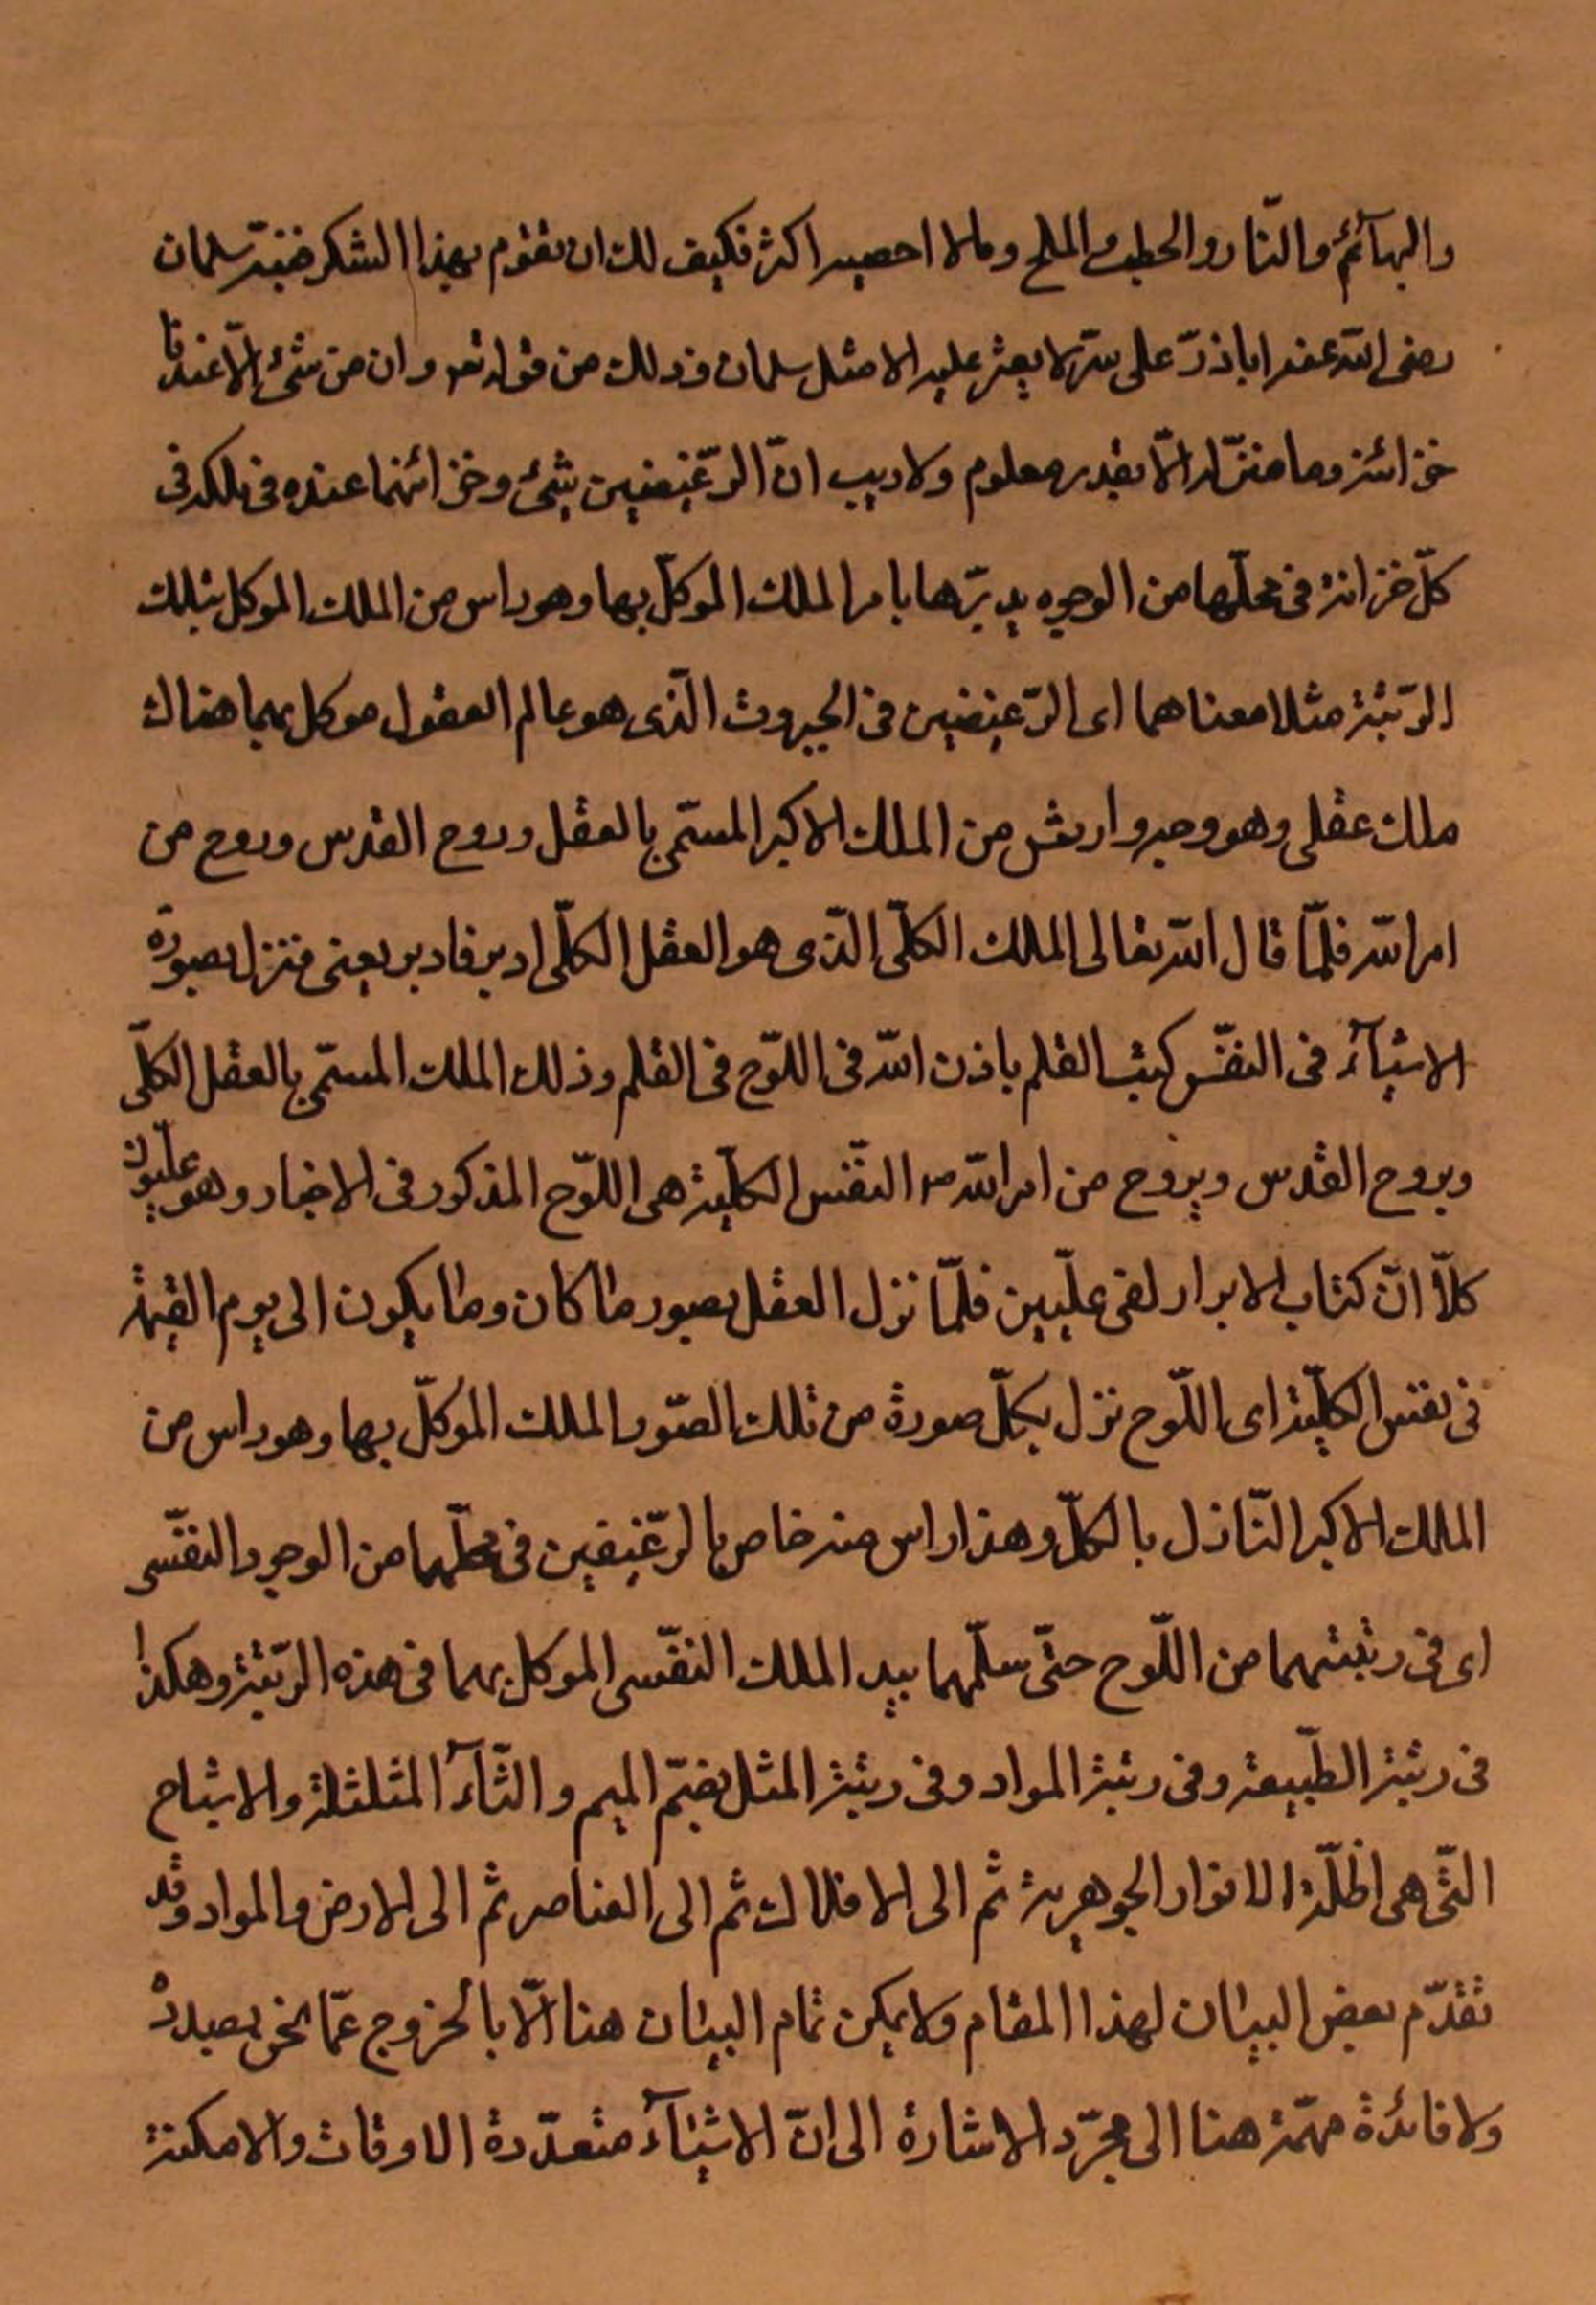 والبهآئم والنّار والحطب والملح وما لا احصيه اكثر فكيف لك ان تقوم بهذا الشكر فنبّه سلمان
رضى الله عنه اباذرّ على سرّ لا يعثر عليه الا مثل سلمان وذلك من قوله تعه وان من شئ الّا عندنا
خزائنه وما ننزّله الّا بقدر معلوم ولا ريب انّ الرّغيفين شئ وخزائنهما عنده فى ملكه فى
كلّ خزانة فى محلّها من الوجود يدبّرها بامر الملك الموكلّ بها وهو راس من الملك الموكل بتلك
الرّتبة مثلا معناهما اى الرّغيفين فى الجبروت الّذى هو عالم العقول موكل بهما هناك
ملك عقلى وهو وجه وا رئش من الملك الاكبر المسمّى بالعقل وروح القدس وروح من
امر الله فلمّا قال الله تعالى الملك الكلّى الّذى هو العقل الكلّى ادبر فادبر يعنى فنزل بصورة
الاشيآء فى النفّس كتب القلم باذن الله فى اللّوح فى القلم وذلك الملك المسمّى بالعقل الكلّى
وبروح القدس وبروح من امر الله النفّس الكلّية هى اللّوح المذكور فى الاخبار وهو علّيون
كلّا انّ كتاب الابرار لفى علّيين فلمّا نزل العقل بصور ما كان وما يكون الى يوم القيمة
فى نفس الكلّية اى اللّوح نزل بكلّ صورة من تلك الصّور الملك الموكلّ بها وهو راس من
الملك الاكبر النّازل بالكلّ وهذا راس منه خاص بالرّغيفين فى محلّهما من الوجود النفّسى
اى فى رتبتهما من اللّوح حتّى سلّمهما بيد الملك النفّسى الموكل بهما فى هذه الرّتبة وهكذا
فى رتبة الطّبيعة وفى رتبة المواد وفى رتبة المثل بضمّ الميم والثّآء المثلثلة والاشباح
التّى هى اظلّة الانوار الجوهرية ثم الى الافلاك ثم الى العناصر ثم الى الارض والمواد وقد
تقدّم بعض البيان لهذا المقام ولا يمكن تمام البيان هنا الّا بالخروج عمّا نحن بصدده
ولا فائدة مهمّة هنا الى مجرّد الاشارة الى انّ الاشيآء متعدّدة الاوقات والامكنة